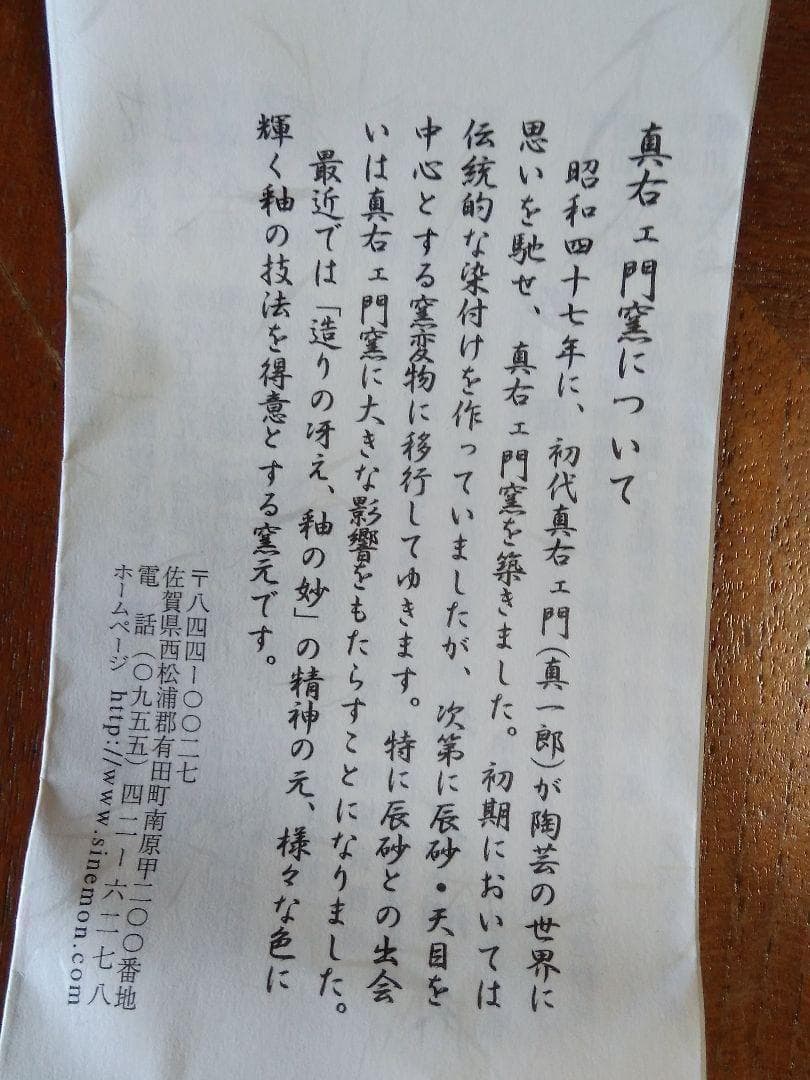 真右ェ門窯について
昭和四十七年に、初代真右ェ門(真一郎)が陶芸の世界に
思いを馳せ、真右ェ門窯を築きました。初期においては
伝統的な染付けを作っていましたが、次第に辰砂・天目を
中心とする窯変物に移行してゆきます。特に辰砂との出会
いは真右ェ門窯に大きな影響をもたらすことになりました。
最近では「造りの冴え、釉の妙」の精神の元、様々な色に
輝く釉の技法を得意とする窯元です。
〒八四四ー〇〇二七
佐賀県西松浦郡有田町南原甲二〇〇番地
電話(〇九五五)四二ー六二七八
ホームページ http://www.sinemon.com